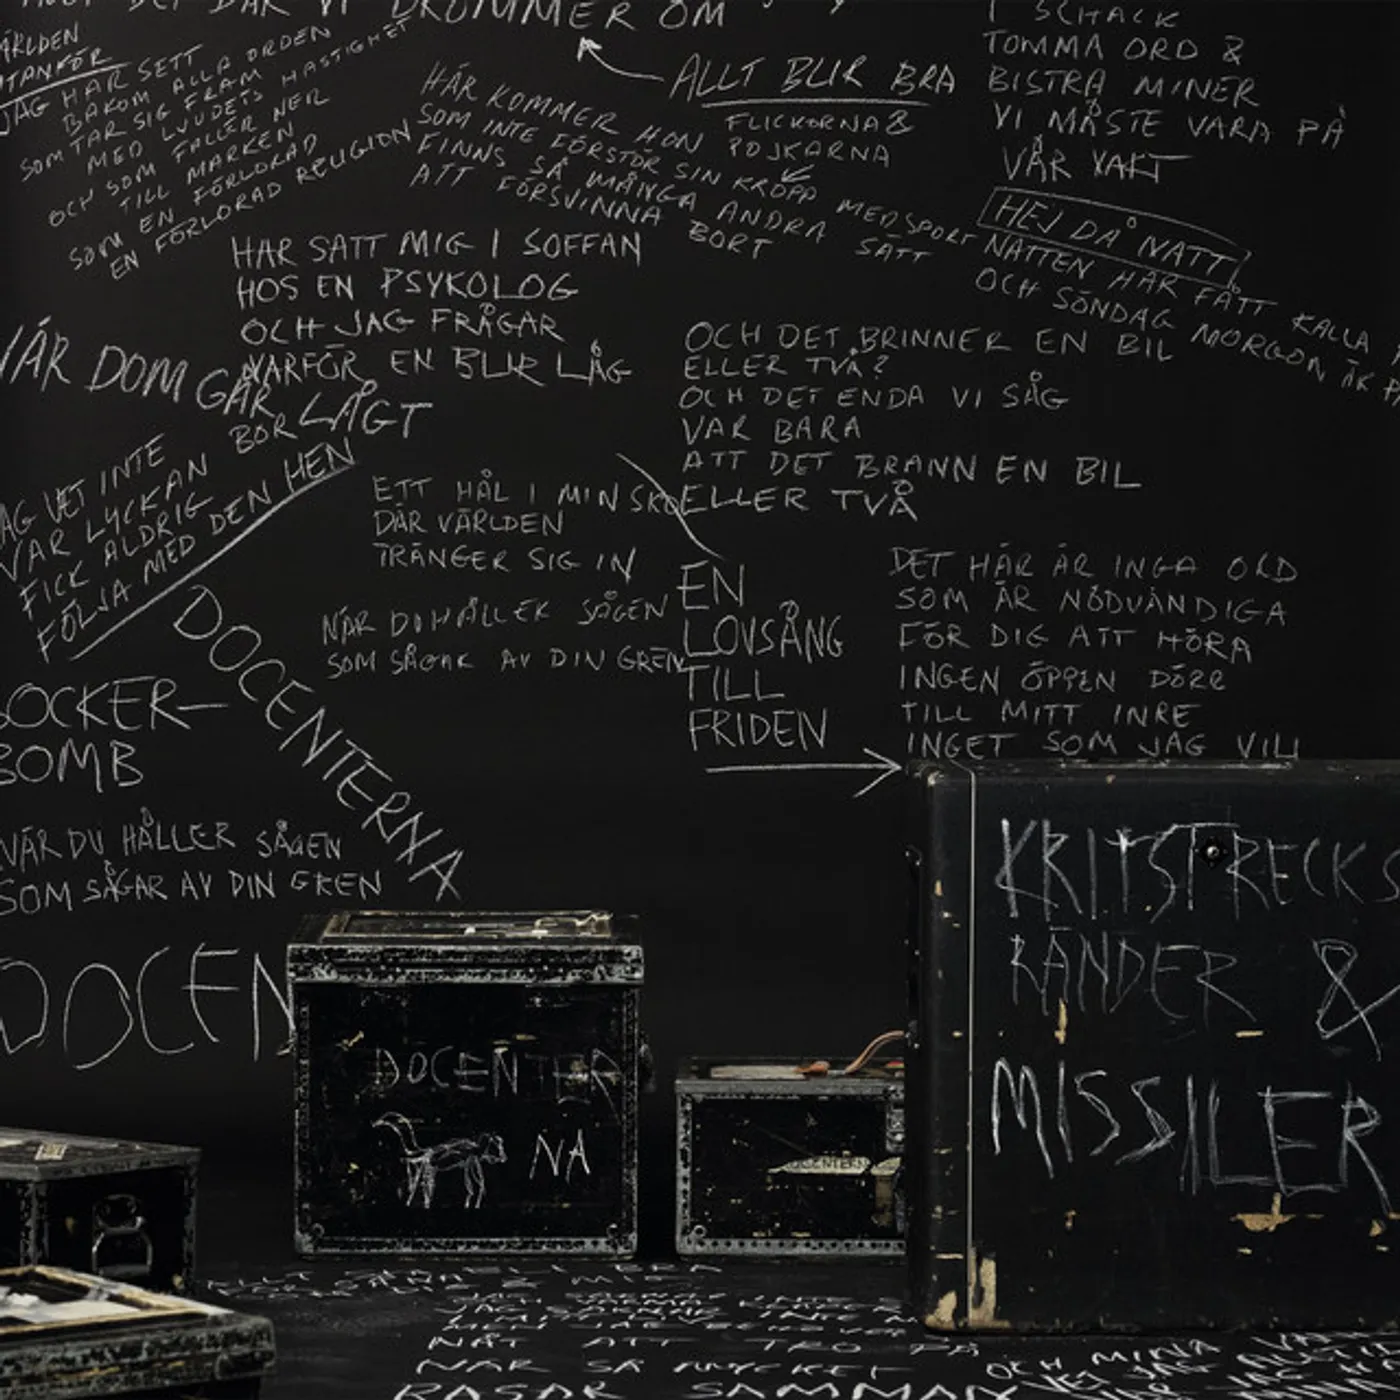 DRÖMMER OM
UTANFÖR
JAG HAR SETT
BAKOM ALLA ORDEN
SOM TAR SIG FRAM
MED LJUDETS HASTIGHET
OCH SOM FALLER NER
TILL MARKEN
SOM EN FÖRLORAD
EN FÖRLORAD RELIGION
HÄR KOMMER HON
SOM INTE FÖRSTÖR SIN KROPP MED SPORT
FINNS SÅ MÅNGA ANDRA SÄTT
ATT FÖRSVINNA BORT
ALLT BLIR BRA
FLICKORNA &
POJKARNA
I SCHACK
TOMMA ORD &
BISTRA MINER
VI MÅSTE VARA PÅ
VÅR VAKT
HEJ DÅ NATT!
NATTEN HAR FÅTT KALLA
OCH SÖNDAG MORGON ÄR
HAR SATT MIG I SOFFAN
HOS EN PSYKOLOG
OCH JAG FRÅGAR
VARFÖR EN BLIR LÅG
NÄR DOM GÅR LÅGT
JAG VET INTE
VAR LYCKAN BOR
FICK ALDRIG
FÖLJA MED DEN HEN
OCH DET BRINNER EN BIL
ELLER TVÅ?
OCH DET ENDA VI SÅG
VAR BARA
ATT DET BRANN EN BIL
ELLER TVÅ
ETT HÅL I MIN SKO
DÄR VÄRLDEN
TRÄNGER SIG IN
NÄR DU HÅLLER SÅGEN
SOM SÅGAR AV DIN GREN
EN
LOVSÅNG
TILL
FRIDEN
DET HÄR ÄR INGA ORD
SOM ÄR NÖDVÄNDIGA
FÖR DIG ATT HÖRA
INGEN ÖPPEN DÖRR
TILL MITT INRE
INGET SOM JAG VILL
DOCENTERNA
SOCKER-
BOMB
NÄR DU HÅLLER SÅGEN
SOM SÅGAR AV DIN GREN
DOCEN
DOCENTER
NA
KRITSTRECKS
RÄNDER &
MISSILER
NÄT ATT TRO PÅ
NÄR SÅ MYCKET
RASAR SAMMAN
OCH MINA